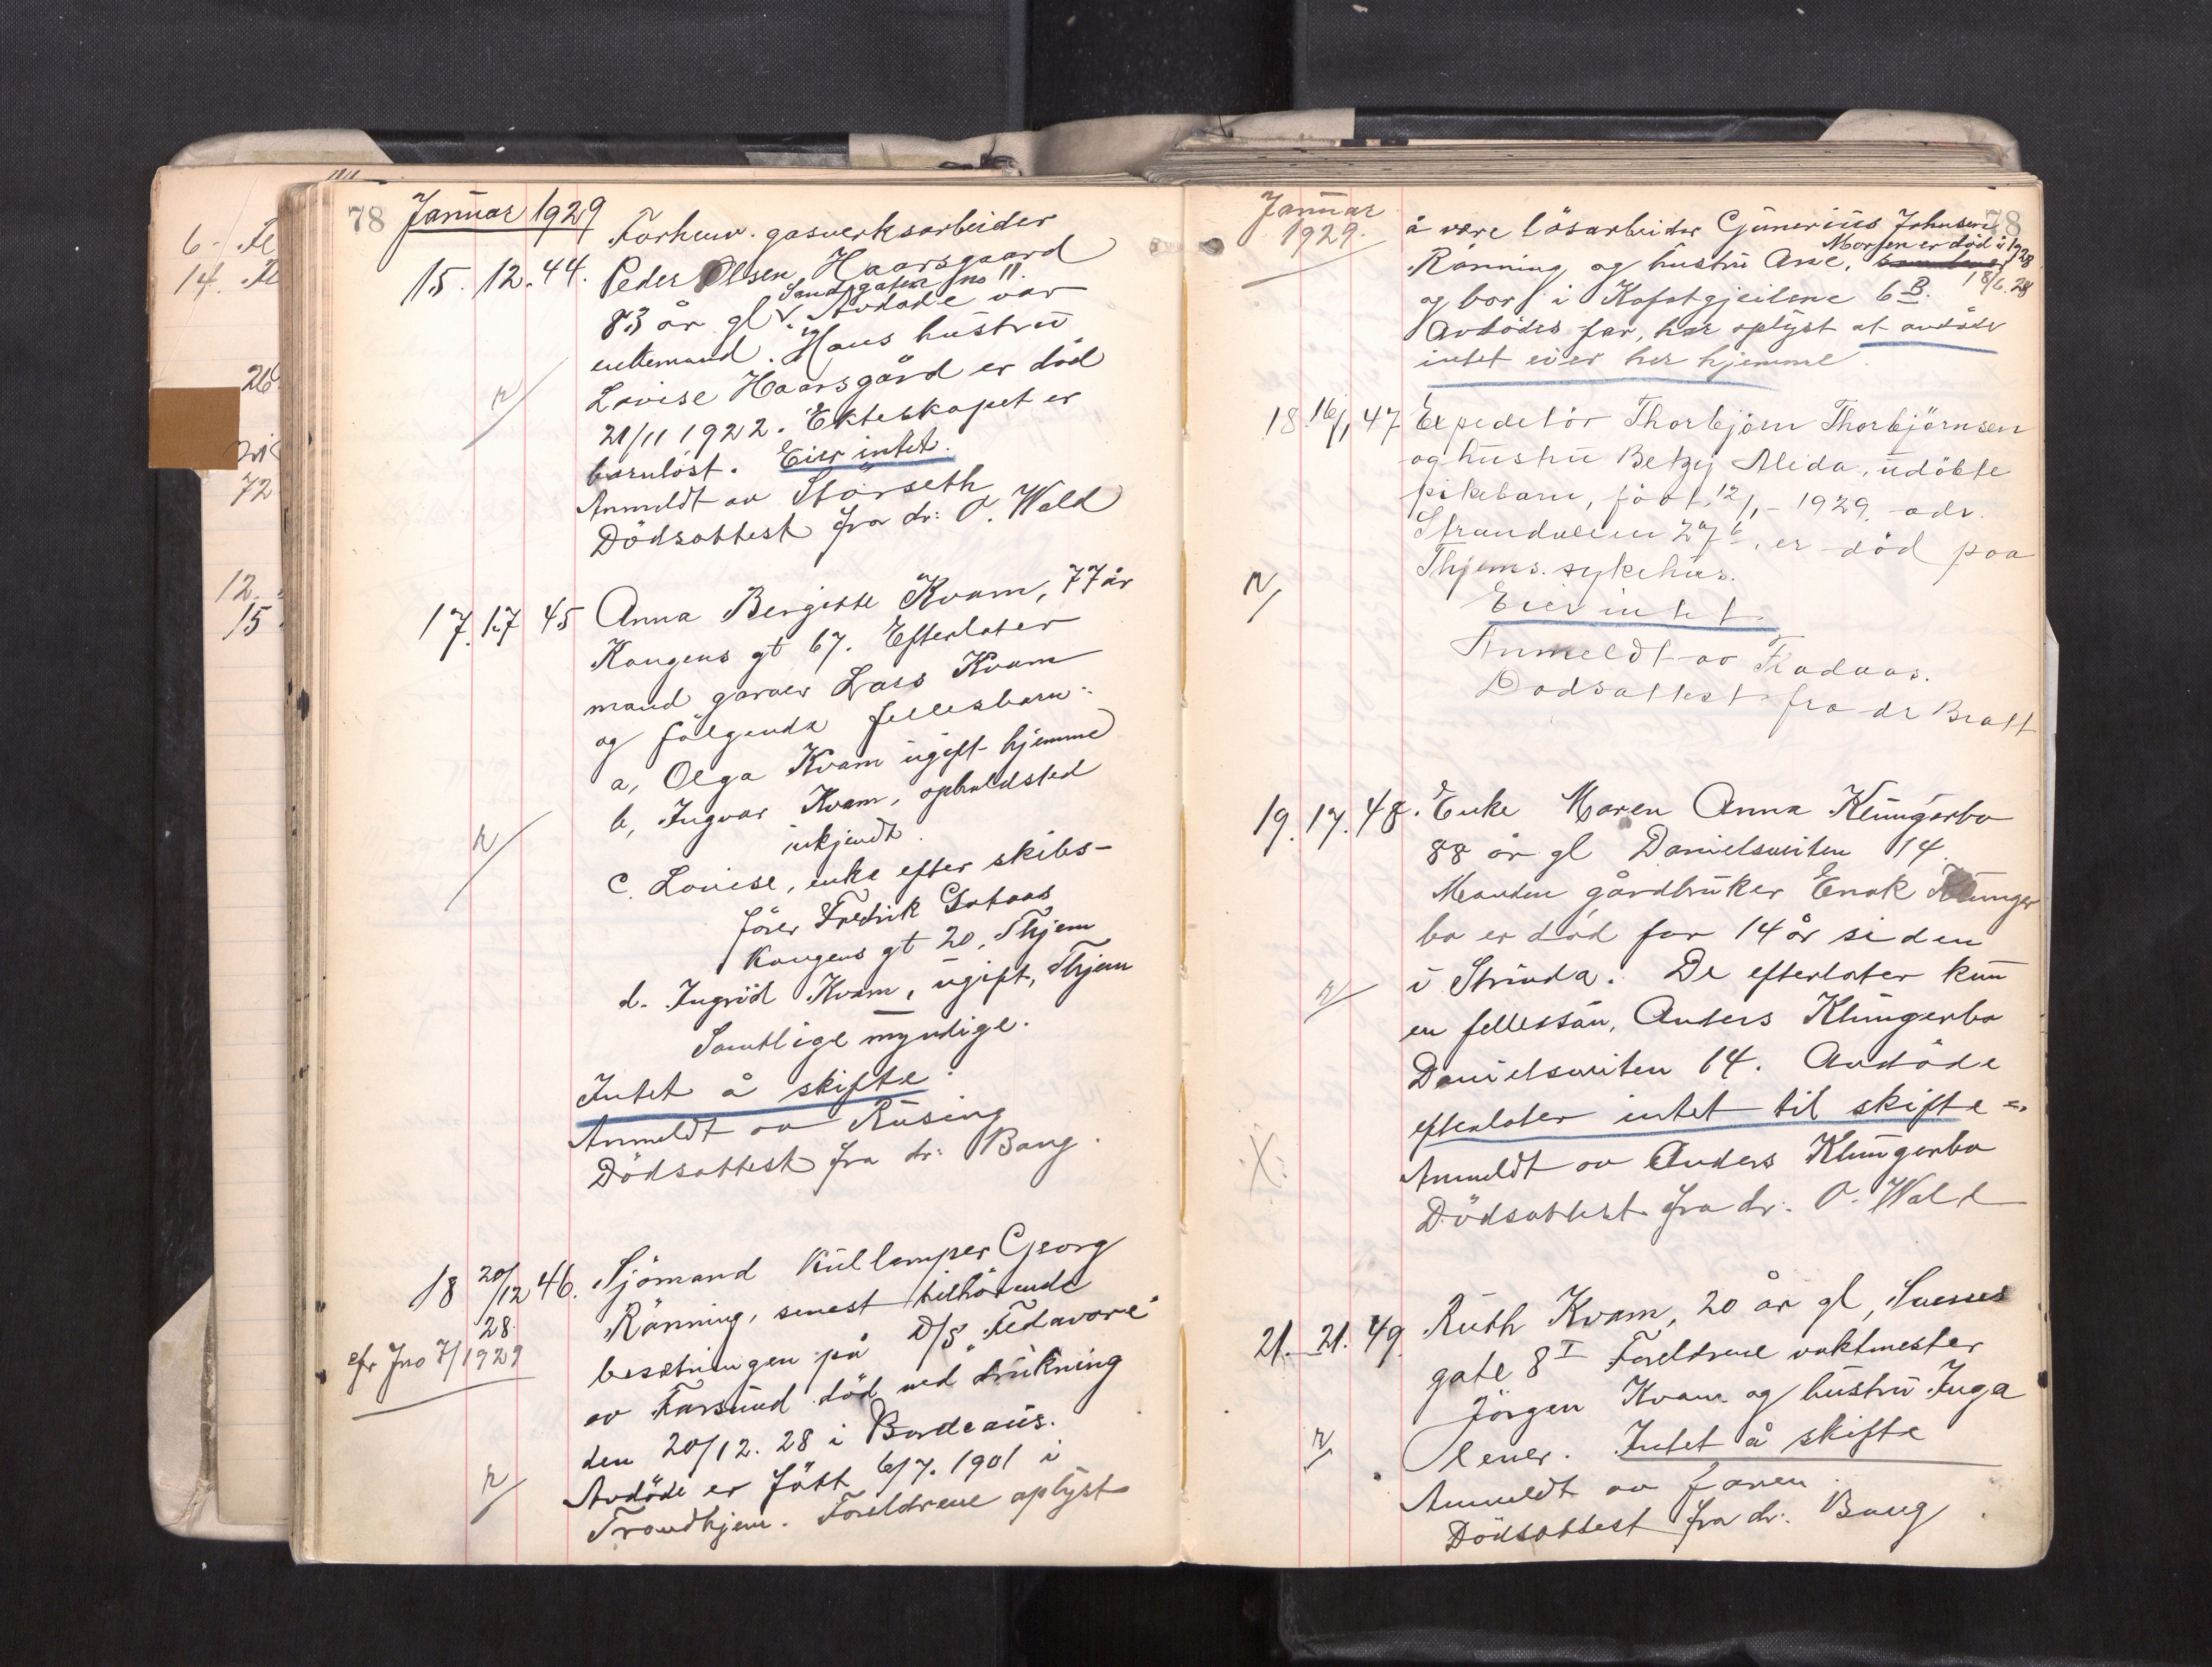 78 Januar 1929
Forhenv. gasverksarbeider
15. 12. 44. Peder Olsen Haarsgaard
Sandgaten no 11.
83 år gl. Avdøde var
enkemand. Hans hustru
Lovise Haarsgård er død
21/11 1922. Ekteskapet er
barnløst. Eier intet.
Anmeldt av Storseth
Dödsattest fra dr: O. Wald
17. 17 45 Anna Bergitte Kvam, 77 år
Kongens gt 67. Efterlater
mand garver Lars Kvam
og følgende fellesbarn:
a, Olga Kvam ugift hjemme
b, Ingvar Kvam, opholdsted
ukjendt.
c. Louise, enke efter skibs-
fører Fredrik
Kongens gt 20, Thjem
d. Ingrid Kvam, ugift, Thjem
Samtlige myndige.
Intet å skifte.
Anmeldt av Rusing
Dödsattest fra dr: Bang.
18 20/12 28. 46. Sjömand Kullemper Georg
Rönning, senest tilhörende
cfr Jno 7/1929
besetningen på D/S "Fedavore"
av Farsund död ved drukning
den 20/12. 28 i Bordeaus.
Avdöde er født 6/7. 1901 i
Trondhjem. Foreldrene oplyst
Januar 1929. 78
å være lösarbeider Gunerius Johnsen
Morfen er död i 1928
Rönning og hustru Ane,
18/6. 28
og bor i Kofotgjeitene 6 B.
Avdödes far, har oplyst at avdöde
intet eier her hjemme.
18. 16/1 47 Expeditör Thorbjörn Thorbjörnsen
og hustru Betzy Alida, udöbte
pikebarn, föd 12/1 - 1929. adr.
Strandveien 27 b, er död paa
Thjems. sykehus.
Eier intet.
Anmeldt av Fladaas.
Dodsattest fra dr Bratt
19. 17. 48. Enke Maren Anna Klungerbo
88 år gl Danielsveiten 14.
Manden gårdbruker Enok Klunger
bo er död for 14 år siden
i Strinda. De efterlater kun
en fellessön, Anders Klungerbo
Danielsveiten 14. Avdöde
efterlater intet til skifte
Anmeldt av Anders Klungerbo
Dödsattest fra dr: O. Wald
21. 21. 49. Ruth Kvam, 20 år gl, Sverres
gate 8 I Foreldrene vaktmester
Jörgen Kvam og hustru Inga
lever. Intet å skifte
Anmeldt av faren.
Dödsattest fra dr: Bang